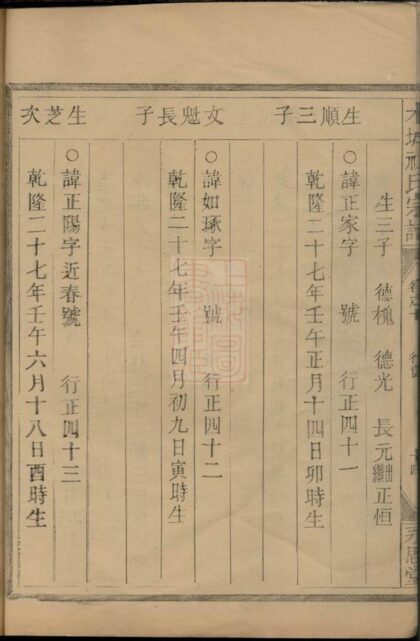 生三子　德槐　德光　長元出繼正恒
生順三子
○諱正家字　號　行正四十一
乾隆二十七年壬午正月十四日卯時生
文魁長子
○諱如琢字　號　行正四十二
乾隆二十七年壬午四月初九日寅時生
生芝次
○諱正陽字近春號　行正四十三
乾隆二十七年壬午六月十八日酉時生